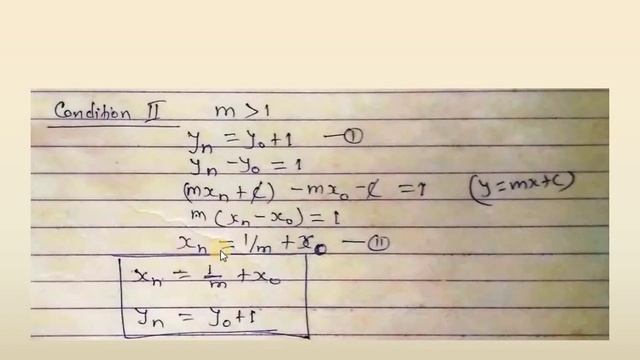 Condition II m > 1
yn = y0 + 1 — I
yn - y0 = 1
(mxn + c) - mx0 - c = 1 (y = mx + c)
m (xn - x0) = 1
xn = 1/m + x0 — II
xn = 1/m + x0
yn = y0 + 1